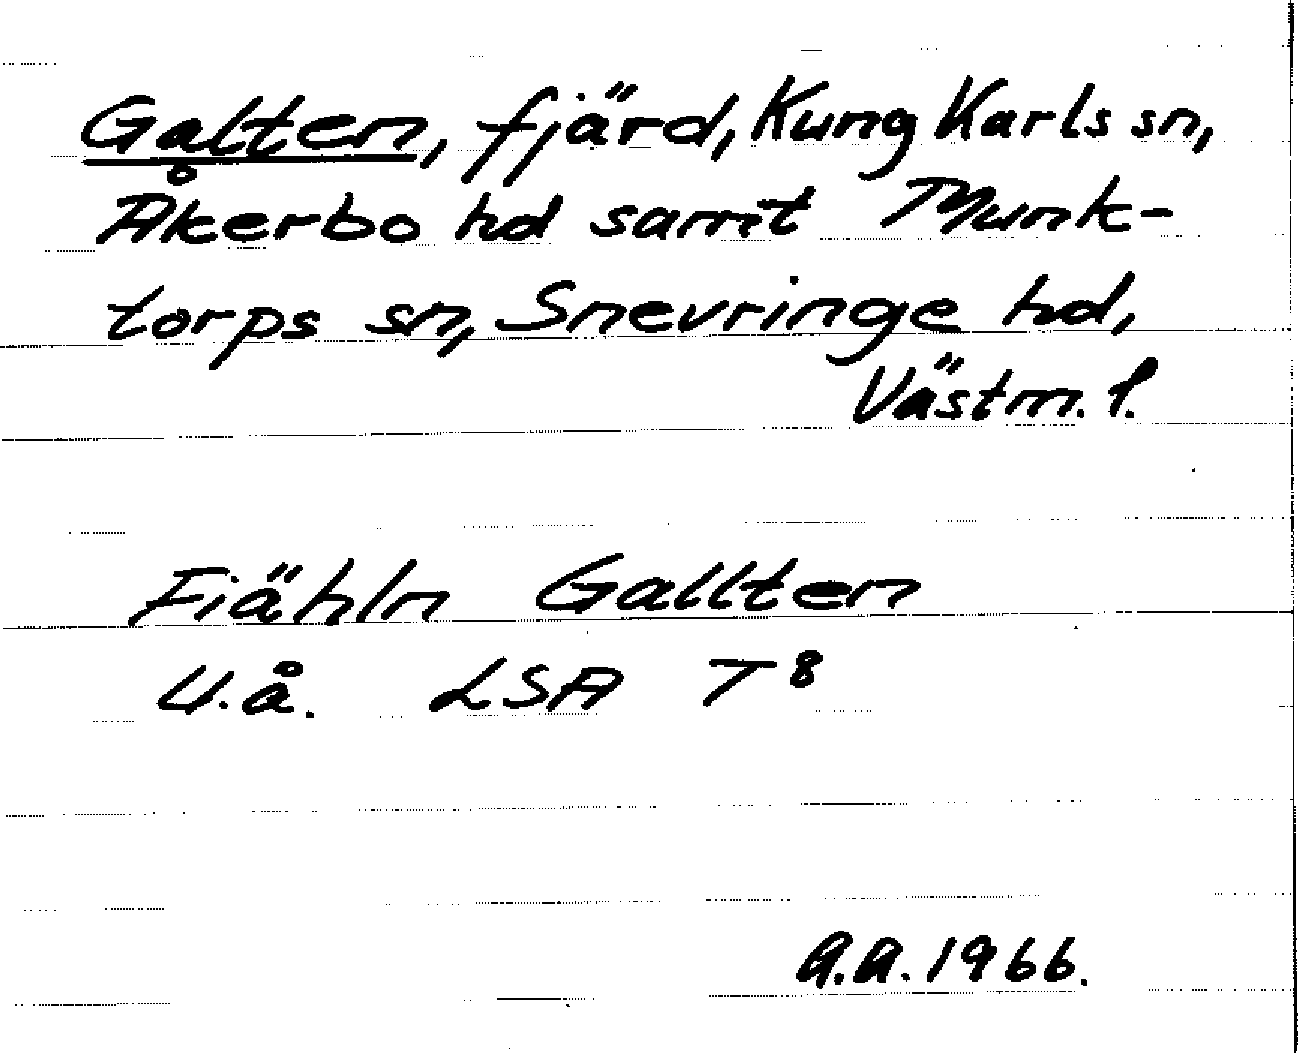 Galten, fjärd, Kung Karls sn,
Åkerbo hd samt Munk-
torps sn, Snevringe hd,
Västm. l.
Fiähln Gallten
U.å. LSA T⁸
A.A. 1966.